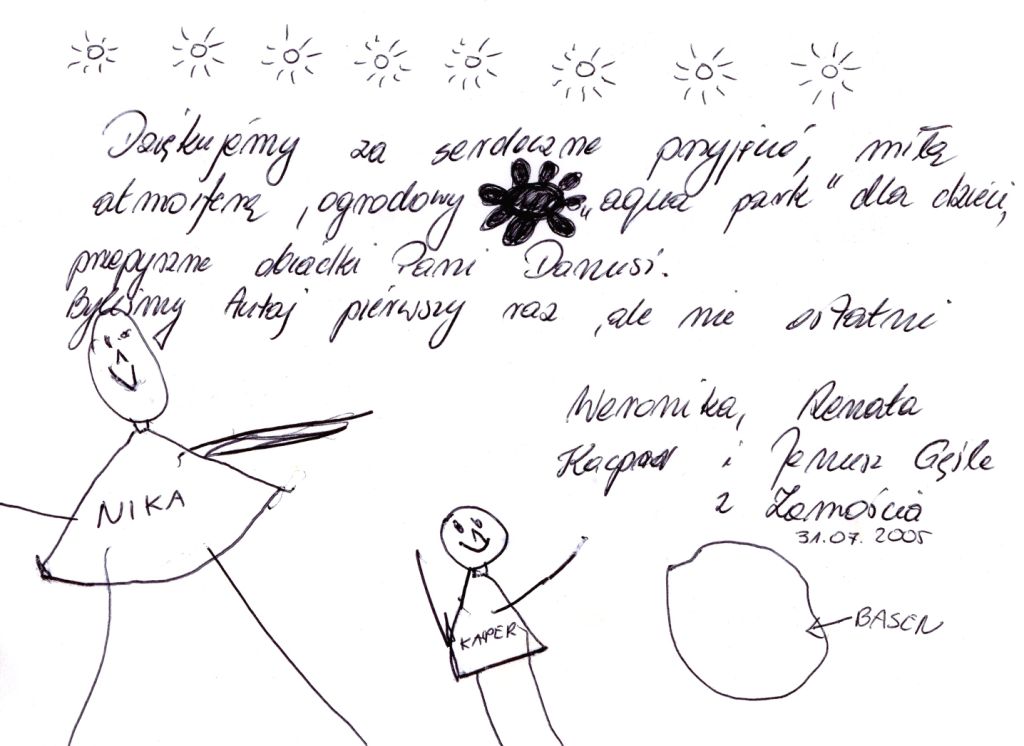 Dziękujemy za serdeczne przyjęcie, miłą
atmosferę, ogrodowy „aqua park" dla dzieci,
przepyszne obiadki Pani Danusi.
Byliśmy tutaj pierwszy raz, ale nie ostatni
Weronika, Renata
Kacper i Janusz Gęśla
z Zamościa
31.07.2005
NIKA
KACPER
BASEN